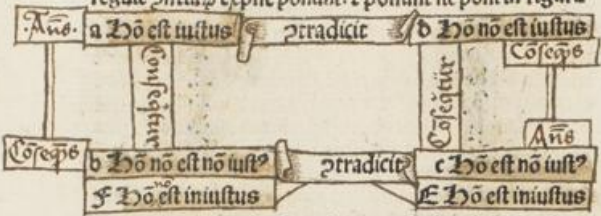 .Añs.
a Hō est iustus
ꝯtradicit
d Hō nō est iustus
Cōseqñs
Consequitur
Coseqt̃ur
Añs
Cōseqñs
b Hō nō est nō iustꝰ
ꝯtradicit
c Hō est nō iustꝰ
F Hō nō est iniustus
E Hō est iniustus